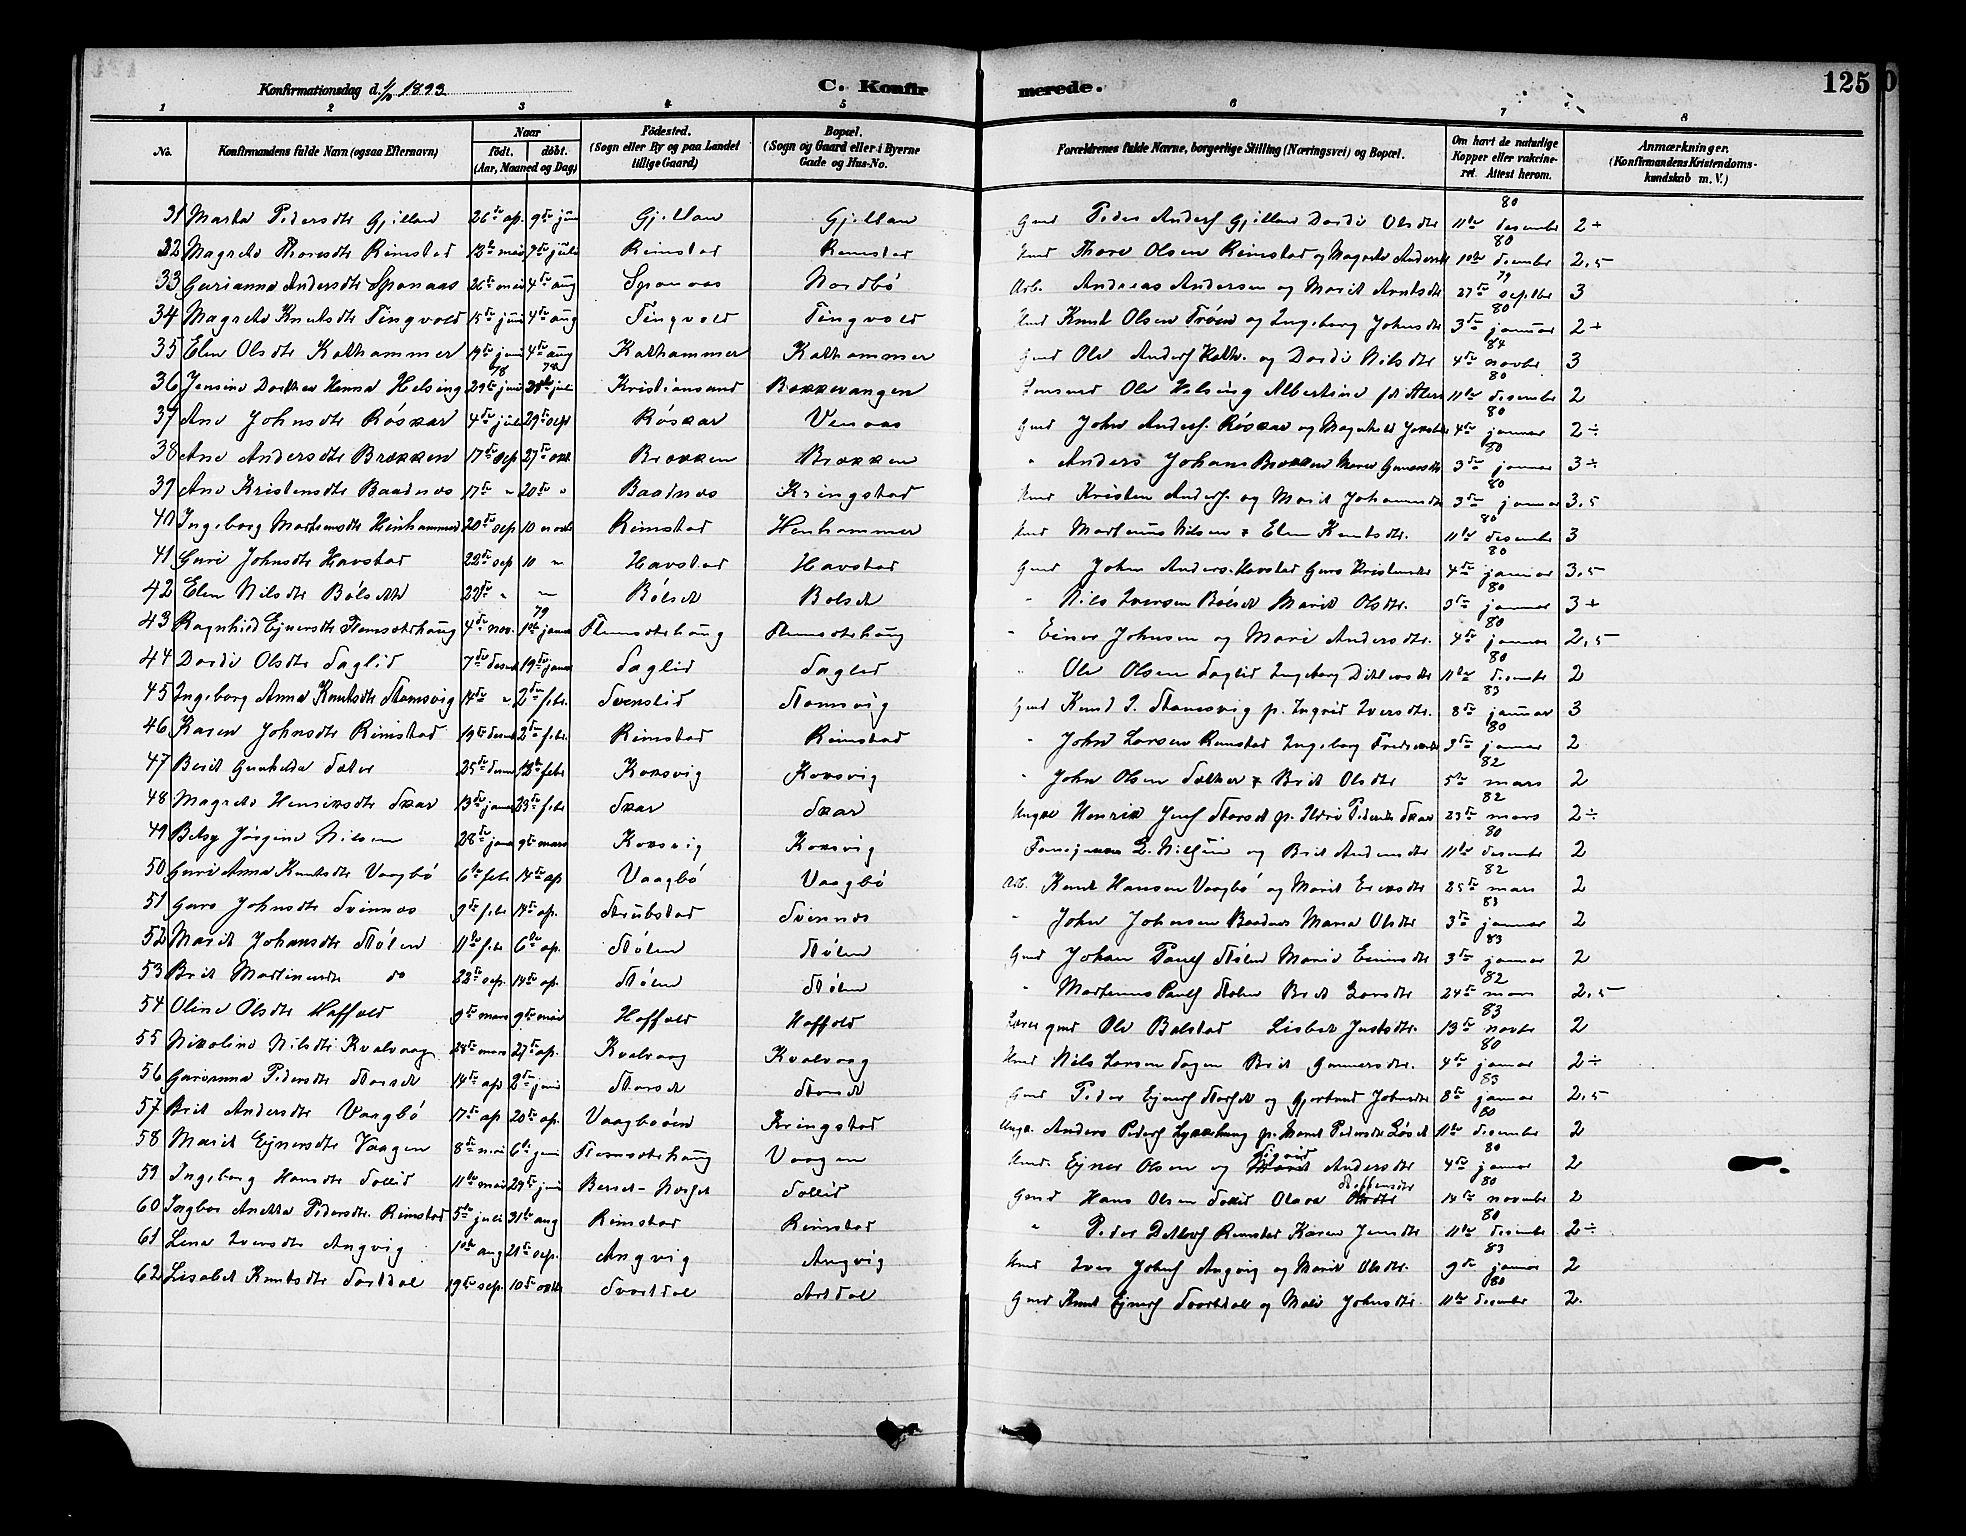 Konfirmationsdag d. 1/10 1893
C. Konfirmerede.
125
1 2 3 4 5 6 7 8
No.
Konfirmandens fulde Navn (ogsaa Efternavn)
Naar
født. døbt.
(Aar, Maaned og Dag)
Födested.
(Sogn eller By og paa Landet
tillige Gaard)
Bopæl.
(Sogn og Gaard eller i Byerne
Gade og Hus-No.
Forældrenes fulde Navne, borgerlige Stilling (Næringsvei) og Bopæl.
Om havt de naturlige
Kopper eller vakcine-
ret. Attest herom.
Anmærkninger.
(Konfirmandens Kristendoms-
kundskab m. V.)
31 Marta Pedersdtr Gjillan 26de ap. 9de jun Gjillan Gjillan Gmd Peder Anders Gjillan Dordi Olsdtr 11te desember 80 2+
32 Magreta Toresdtr Reinstad 12te mai 7de juli Reinstad Reinstad Tore Olsen Reinstad og Magreta Andersdtr 10te desember 80 2,5
33 Gurianna Andersdtr Sponaas 26de mai 4de aug Sponaas Nordbö Arb. Andreas Andersen og Marit Arntsdtr 27de septbr 79 3
34 Magreta Knutsdtr Tingvold 15de juni 4de aug Tingvold Tingvold Knut Olsen Tröen og Ingeborg Johnsdtr 3de januar 80 2+
35 Elen Olsdtr Kathammer 19de juni 4de aug Kathammer Kathammer Gmd Ole Anders Kath. og Dordi Nilsdtr 4de novbr 84 3
36 Jensine Dorthea Hanna Helsing 29de juni 78 28de juli 78 Kristiansund Bakkevangen Lensmd Ole Helsing Albertine 11te desember 80 2
37 Ane Johnsdtr Röskar 4de juli 29de sep Röskar Venaas Gmd John Anders. Röskar og Magnhild 4de januar 80 2÷
38 Ane Andersdtr Brækken 17de sep. 27de okt Brækken Brækken " Anders Johans Brækken Maret Gunnarsdtr 3de januar 80 3÷
39 Ane Kristensdtr Baadnes 17de " 20de " Baadnes Kringstad Kristen Anders. og Marit Johannesdtr 3de januar 80 3,5
40 Ingeborg Martinusdtr Henhammer 20de sep 10 novbr Reinstad Henhammer Martinus Nilsen & Elen Knutsdtr. 11te desember 80 3
41 Guri Johnsdtr Havstad 22de sep 10 " Havstad Havstad Gmd John Anders. Havstad Guro Kristensdtr 4de januar 80 3,5
42 Elen Nilsdtr Bölsett 22de " " Bölset Bolset " Nils Iversen Bölset Marit Olsdtr. 3de januar 80 3+
43 Ragnhild Ejnersdtr Flemsæterhaug 4de nov. 10de januar 79 Flemsæterhaug Flemsæterhaug " Einer Johnsen og Mari Andersdtr. 4de januar 80 2,5
44 Dordi Olsdtr Saglid 7de desmb 19de januar Saglid Saglid " Ole Olsen Saglid Ingeborg Ditlevsdtr 11te desember 80 2
45 Ingeborg Anna Knutsdtr Stamsvig 14de " 2den febr. Svenslid Stamsvig Gmd Knud I. Stamsvig p. Ingrid Iversdtr. 8de januar 83 3
46 Karen Johnsdtr Reinstad 19de desmb 2den febr. Reinstad Reinstad " John Larsen Reinstad Ingeborg 3de januar 80 2
47 Berit Gunhilda Sæter 25de desmb 12te febr Korsvig Korsvig " John Olsen Sæther & Brit Olsdtr 5te mars 82 2
48 Magreta Henriksdtr Skar 13de januar 23de febr Skar Skar Ungkar Henrik Storset p. Ildri Pedersdtr Skar 23de mars 82 2÷
49 Betsy Jörgine Nilsen 28de janr 9de mars Korsvig Korsvig L. Nilsen og Brit Andersdtr 11te desember 80 2
50 Guri Anna Knutsdtr Vaagbö 6te febr 14de ap Vaagbö Vaagbö Arb. Knut Hansen Vaagbö og Marit Eriksdtr 25de mars 82 2
51 Guro Johnsdtr Svinnes 9de febr 14de ap. Strubstad Svinnes " John Johnsen Baadnes Maria Olsdtr 3de januar 83 2
52 Marit Johansdtr Stölen 11te febr 6te ap. Stölen Stölen Gmd Johan Paulss Stölen Marit Einersdtr 3de januar 83 2
53 Brit Martinusdtr do 22de sep. 14de ap. Stölen Stölen " Martinus Paulss Stölen Brit Larsdtr 24de mars 82 2,5
54 Oline Olsdtr Hoffold 9de mars 9de mai Hoffold Hoffold Lærer gmd Ole Bolstad Lisbet Justsdtr. 13de novbr 83 2
55 Nikoline Nilsdtr Kvalvaag 28de mars 27de ap. Kvalvaag Kvalvaag Nils Larsen Sagen Brit Gunnersdtr. 4de januar 80 2÷
56 Gurianna Pedersdtr Storset 14de ap 2den juni Storset Storset Gmd Peder Ejners Storset og Gjertrud Johnsdtr 8de januar 83 2,5
57 Brit Andersdtr Vaagbö 17de ap 20de ap. Vaagböen Kringstad Ungk. Anders Peders Lykkehaug p. Marit Pedersdtr Löset 11te desember 80 2
58 Marit Ejnersdtr Vaagen 8de mai 6te juni Flemsæterhaug Vaagen Ejner Olsen og Sigrid Andersdtr 4de januar 80 2
59 Ingeborg Hansdtr Sollid 11te mai 29de juni Berset-Næset Sollid Gmd Hans Olsen Solid Olava Steffensdtr 14de november 80 2
60 Ingbor Anetta Pedersdtr. Reinstad 5te juli 31te aug Reinstad Reinstad " Peder Ditlevs Reinstad Karen Jensdtr 11te desember 80 2÷
61 Lena Iversdtr Angvig 10de aug 21de sep. Angvig Angvig Iver Johns Angvig og Marit Olsdtr. 9de januar 83 2
62 Lisabet Knutsdtr Sortdal 19de sep. 10de oktb Svortdal Gmd Knut Ejners Svortdal og Mali Johnsdtr. 11te desember 80 2.